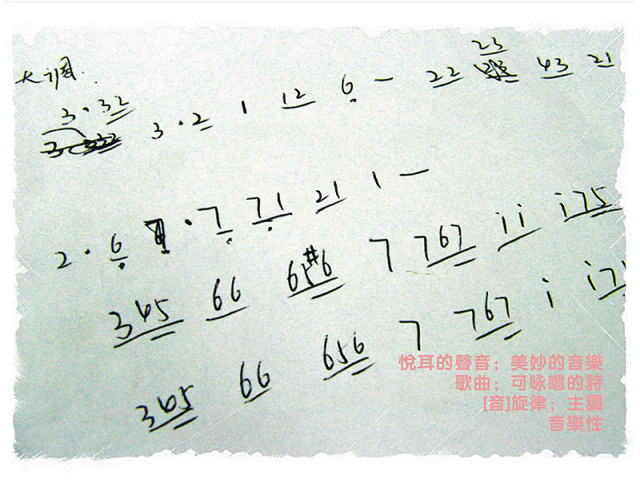 大调.
23
3·32 3·2 1 12 6 — 22 43 21
2·6 ·7 71 21 1 —
345 66 6#56 7 767 ii i75
345 66 656 7 767 i i7
悅耳的聲音；美妙的音樂
歌曲；可咏唱的詩
[音]旋律；主調
音樂性